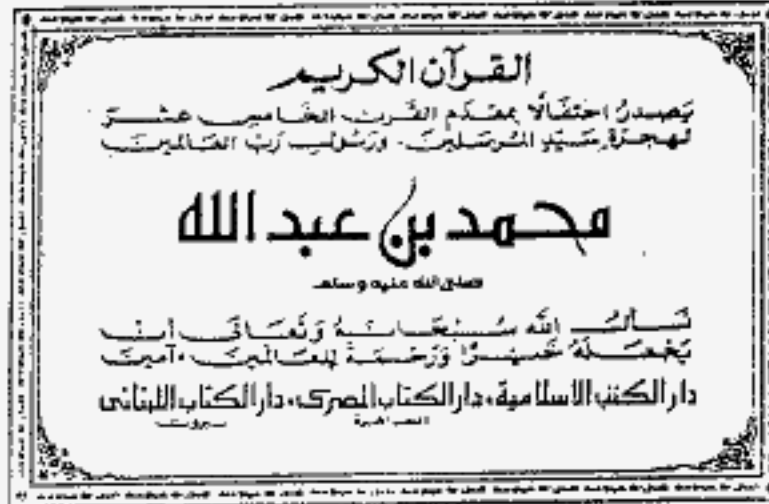 القرآن الكريم
يَصدرُ احتفَالًا بمقدَم القَرن الخَامِس عَشَر
لهجرَة سَيّدِ المُرسَلين. وَرَسُولِ رَبّ العَالمين
محمد بن عبد الله
صلى الله عليه وسلم
نَسألُ الله سُبْحَانَهُ وَتَعَالَى أن
يَجْعَلَهُ خَيْرًا وَرَحْمَةً لِلعَالَمِين. آمين
دار الكتب الاسلامية. دار الكتاب المصرى. دار الكتاب اللبنانى
القاهرة بيروت